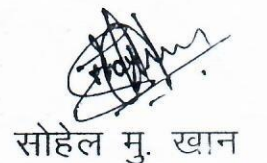 सोहेल मु. खान